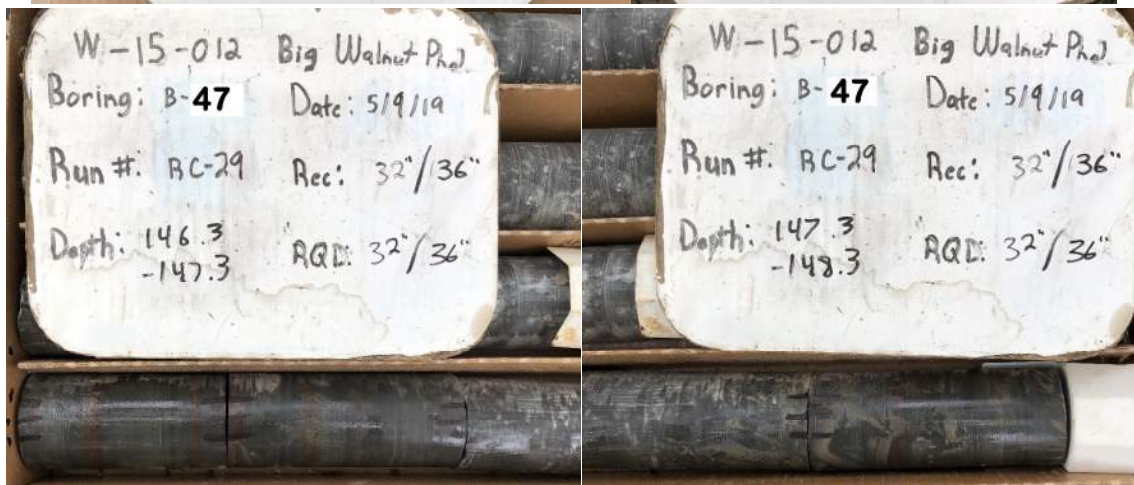 W-15-012 Big Walnut Ph2
Boring: B-47 Date: 5/9/19
Run #: RC-29 Rec: 32"/36"
Depth: 146.3
-147.3 RQD: 32"/36"
W-15-012 Big Walnut Ph2
Boring: B-47 Date: 5/9/19
Run #: RC-29 Rec: 32"/36"
Depth: 147.3
-148.3 RQD: 32"/36"